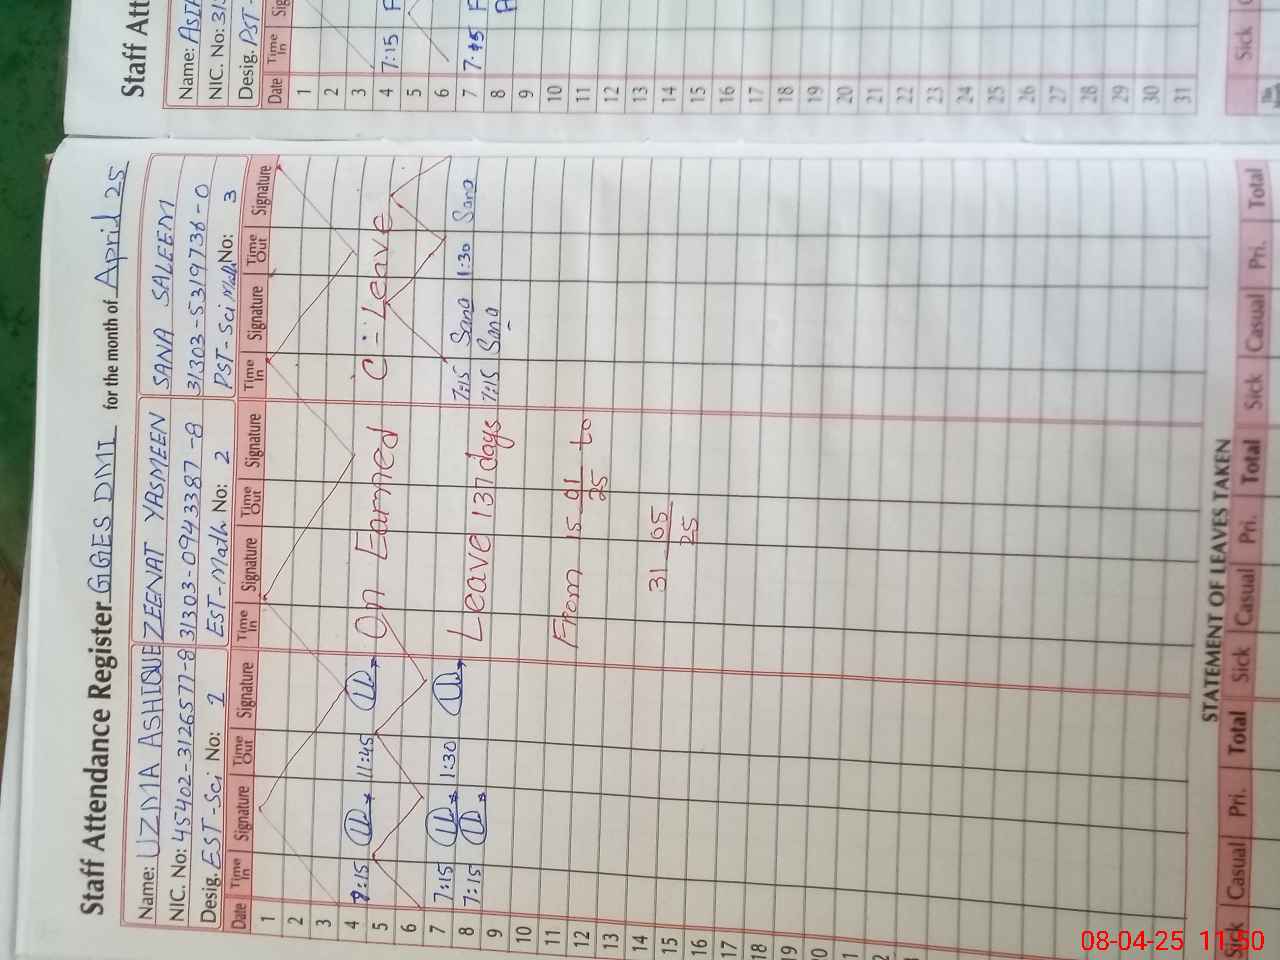 Staff Attendance Register GGES DMI for the month of April 25
Name: UZMA ASHIQUE ZEENAT YASMEEN SANA SALEEM
NIC. No: 45402-3126577-8 31303-0943387-8 31303-5319736-0
Desig. EST-Sci No: 2 EST-Math No: 2 PST-Sci Math No: 3
Date Time In Signature Time Out Signature Time In Signature Time Out Signature Time In Signature Time Out Signature
1
2
3
4 11:45 On Earned C-Leave
5
6
7 7:15 1:30 7:15 Sana 1:30 Sana
8 7:15 Leave 137 days 7:15 Sana
9
10
11 From 15 01/25 to
12
13
14 31 05/25
15
16
17
18
19
20
STATEMENT OF LEAVES TAKEN
Sick Casual Pri. Total Sick Casual Pri. Total Sick Casual Pri. Total
Staff Att
Name:
NIC. No: 31
Desig. PST-
Date Time In Sig
1
2
3
4 7:15
5
6
7 7:15
8
9
10
11
12
13
14
15
16
17
18
19
20
21
22
23
24
25
26
27
28
29
30
31
Sick
08-04-25 11:50